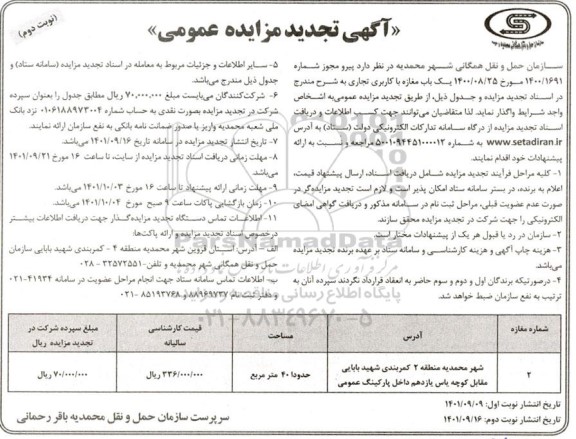 «آگهی تجدید مزایده عمومی»
(نوبت دوم)
سازمان حمل و نقل همگانی شهر محمدیه در نظر دارد پیرو مجوز شماره
۱۴۰۰/۱۶۹۱ مورخ ۱۴۰۰/۰۸/۲۵ یک باب مغازه با کاربری تجاری به شرح مندرج
در اسناد تجدید مزایده و جدول ذیل، از طریق تجدید مزایده عمومی به اشخاص
واجد شرایط واگذار نماید. لذا متقاضیان می‌توانند جهت کسب اطلاعات و دریافت
اسناد تجدید مزایده از درگاه سامانه تدارکات الکترونیکی دولت (ستاد) به آدرس
www.setadiran.ir به شماره ۵۰۰۱۰۹۴۴۵۱۰۰۰۰۱۲ مراجعه و نسبت به ارائه
پیشنهادات خود اقدام نمایند.
۱- کلیه مراحل فرآیند تجدید مزایده شامل دریافت اسناد، ارسال پیشنهاد قیمت،
اعلام به برنده، در بستر سامانه ستاد امکان پذیر است و لازم است تجدید مزایده‌گر در
صورت عدم عضویت قبلی، مراحل ثبت نام در سامانه مذکور و دریافت گواهی امضای
الکترونیکی را جهت شرکت در تجدید مزایده محقق سازند.
۲- سازمان در رد یا قبول هر یک از پیشنهادات مختار است.
۳- هزینه چاپ آگهی و هزینه کارشناسی و سامانه ستاد بر عهده برنده تجدید مزایده
می‌باشد.
۴- درصورتیکه برندگان اول و دوم و سوم حاضر به انعقاد قرارداد نگردند سپرده آنان به
ترتیب به نفع سازمان ضبط خواهد شد.
۵- سایر اطلاعات و جزئیات مربوط به معامله در اسناد تجدید مزایده (سامانه ستاد) و
جدول ذیل مندرج می‌باشد.
۶- شرکت‌کنندگان می‌بایست مبلغ ۷۰٫۰۰۰٫۰۰۰ ریال مطابق جدول را بعنوان سپرده
شرکت در تجدید مزایده بصورت نقدی به حساب شماره ۰۱۰۶۱۸۸۹۷۳۰۰۴ نزد بانک
ملی شعبه محمدیه واریز یا صدور ضمانت نامه بانکی به نفع سازمان ارائه نمایند.
۷- تاریخ انتشار تجدید مزایده در سامانه تاریخ ۱۴۰۱/۰۹/۱۶ می‌باشد.
۸- مهلت زمانی دریافت اسناد تجدید مزایده از سایت، تا ساعت ۱۶ مورخ ۱۴۰۱/۰۹/۲۱
می‌باشد.
۹- مهلت زمانی ارائه پیشنهاد تا ساعت ۱۶ مورخ ۱۴۰۱/۱۰/۰۳ می‌باشد.
۱۰- زمان بازگشایی پاکات ساعت ۹ صبح مورخ ۱۴۰۱/۱۰/۰۴ می‌باشد.
۱۱- اطلاعات تماس دستگاه تجدید مزایده‌گذار جهت دریافت اطلاعات بیشتر
درخصوص اسناد تجدید مزایده و ارائه پاکت‌ها:
الف- آدرس: استان قزوین شهر محمدیه منطقه ۴ - کمربندی شهید بابایی سازمان
حمل و نقل همگانی شهر محمدیه و تلفن: ۳۲۵۷۲۵۵۱ - ۰۲۸
ب- اطلاعات تماس سامانه ستاد جهت انجام مراحل عضویت در سامانه ۴۱۹۳۴-۰۲۱
و دفتر ثبت نام ۸۸۹۶۹۷۳۷ و ۸۵۱۹۳۷۶۸-۰۲۱
ParsNamadData
پایگاه اطلاع رسانی
۰۲۱-۸۸۳۴۹۶۷۰-۵
شماره مغازه
آدرس
مساحت
قیمت کارشناسی سالیانه
مبلغ سپرده شرکت در تجدید مزایده ریال
۲
شهر محمدیه منطقه ۲ کمربندی شهید بابایی
مقابل کوچه یاس یازدهم داخل پارکینگ عمومی
حدودا ۴۰ متر مربع
۳۳۶/۰۰۰/۰۰۰ ریال
۷۰/۰۰۰/۰۰۰ ریال
تاریخ انتشار نوبت اول: ۱۴۰۱/۰۹/۰۹
تاریخ انتشار نوبت دوم: ۱۴۰۱/۰۹/۱۶
سرپرست سازمان حمل و نقل محمدیه باقر رحمانی